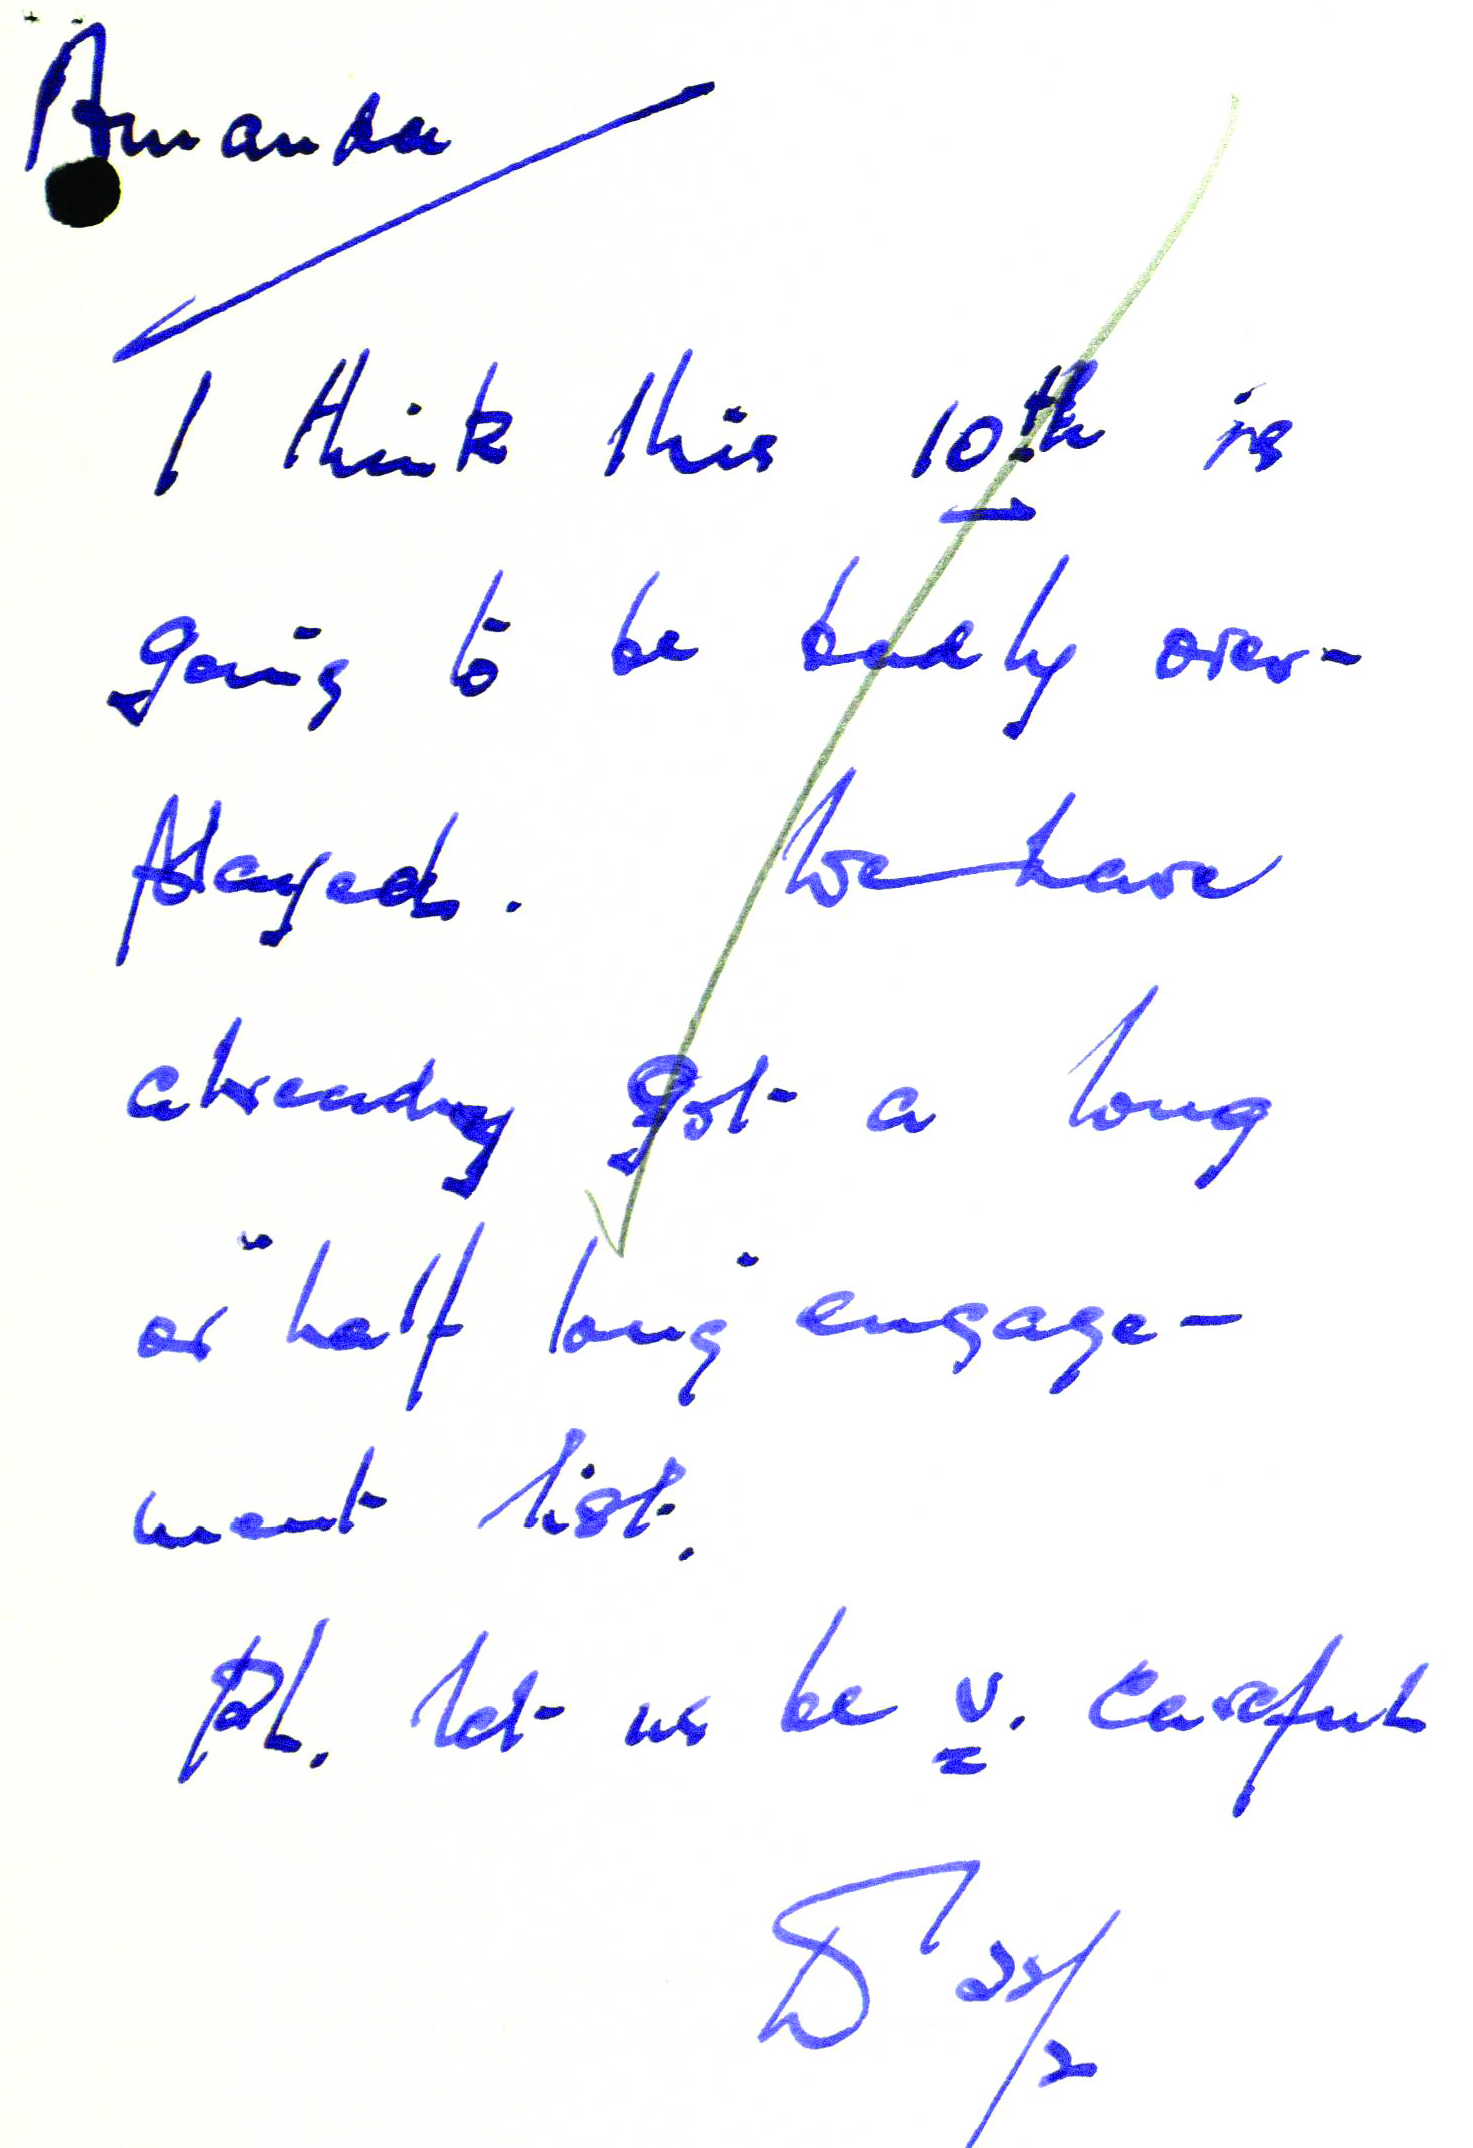 Amanda
I think this 10th is
going to be badly over-
played. We have
already got a long
or half long engage-
ment list.
Pl. let us be v. careful